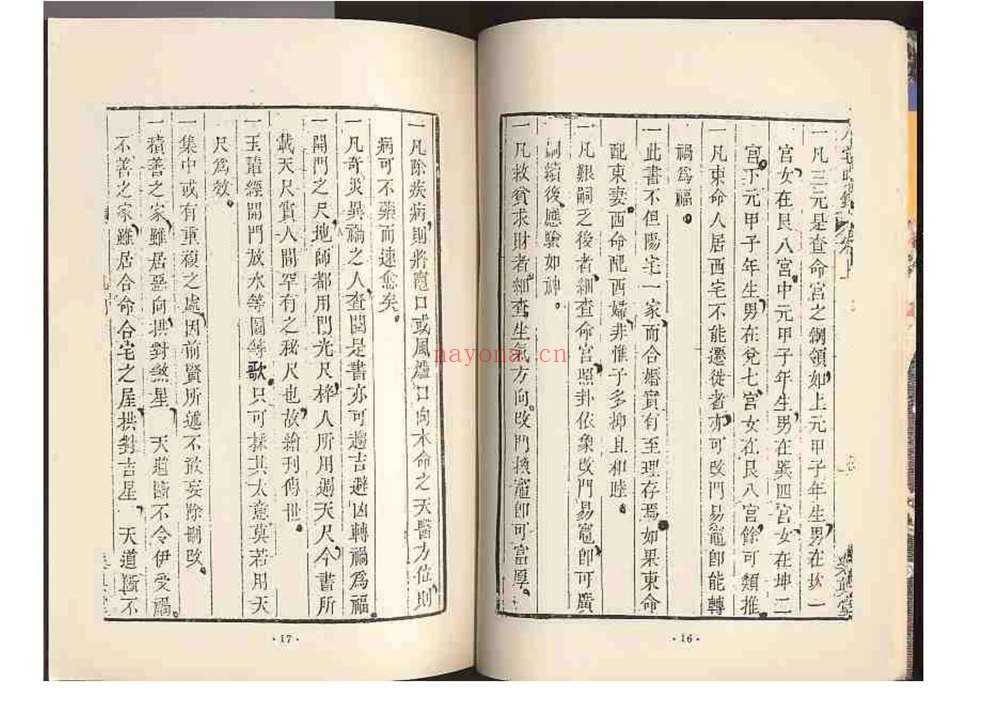 一凡三元是查命宮之綱領如上元甲子年生男在坎一
宮女在艮八宮中元甲子年生男在巽四宮女在坤二
宮下元甲子年生男在兌七宮女在艮八宮餘可類推
一凡東命人居西宅不能遷徙者亦可改門易竈卽能轉
禍爲福
一此書不但陽宅一家而合婚實有至理存焉如果東命
配東妻西命配西婦非惟子多抑且和睦
一凡艱嗣乏後者細查命宮照卦依象改門易竈卽可廣
嗣續後應驗如神
一凡救貧求財者細查生氣方向改門換竈卽可富厚
·16·
一凡除疾病則將竈口或風爐口向本命之天醫方位則
病可不藥而速愈矣
一凡奇災異禍之人查閱是書亦可趨吉避凶轉禍爲福
一開門之尺地師都用門光尺梓人所用過天尺今書所
載天尺實人間罕有之秘尺也故繪刊傳世
一玉輦經開門放水等圖等歌只可採其大意莫若用天
尺爲效
一集中或有重複之處因前賢所遞不敢妄除刪改
一積善之家雖居惡向拱對煞星 天道斷不令伊受禍
不善之家雖居合命合宅之屋拱對吉星 天道斷不
·17·
nayona.cn